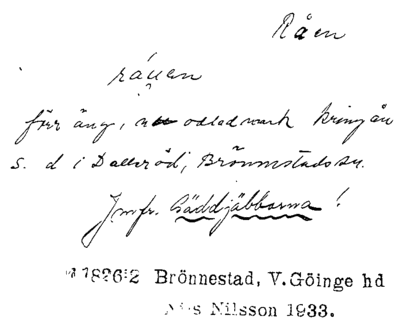 Råen
råuen
förr äng, nu odlad mark kring ån
s. d i Dalleröd, Brönnestads sn.
Jmfr. Gäddjäbbarna!
M 1826:2 Brönnestad, V.Göinge hd
Nils Nilsson 1933.